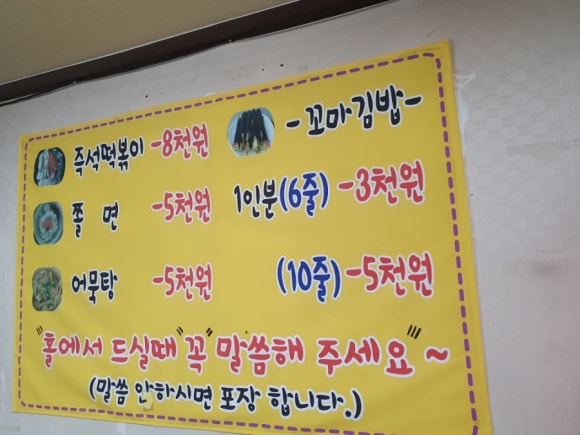 즉석떡볶이 -8천원
쫄 면 -5천원
어묵탕 -5천원
-꼬마김밥-
1인분(6줄) -3천원
(10줄) -5천원
"홀에서 드실때 "꼭" 말씀해 주세요" ~
(말씀 안하시면 포장 합니다.)